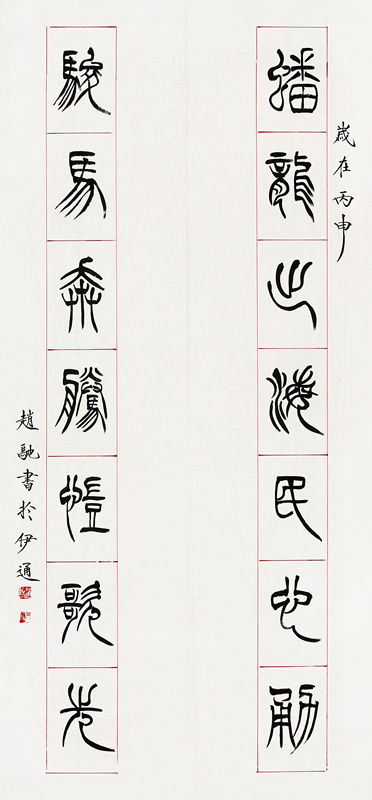 歲在丙申
蟠龍出海民心勇
駿馬奔騰愷歌先
趙馳書於伊通